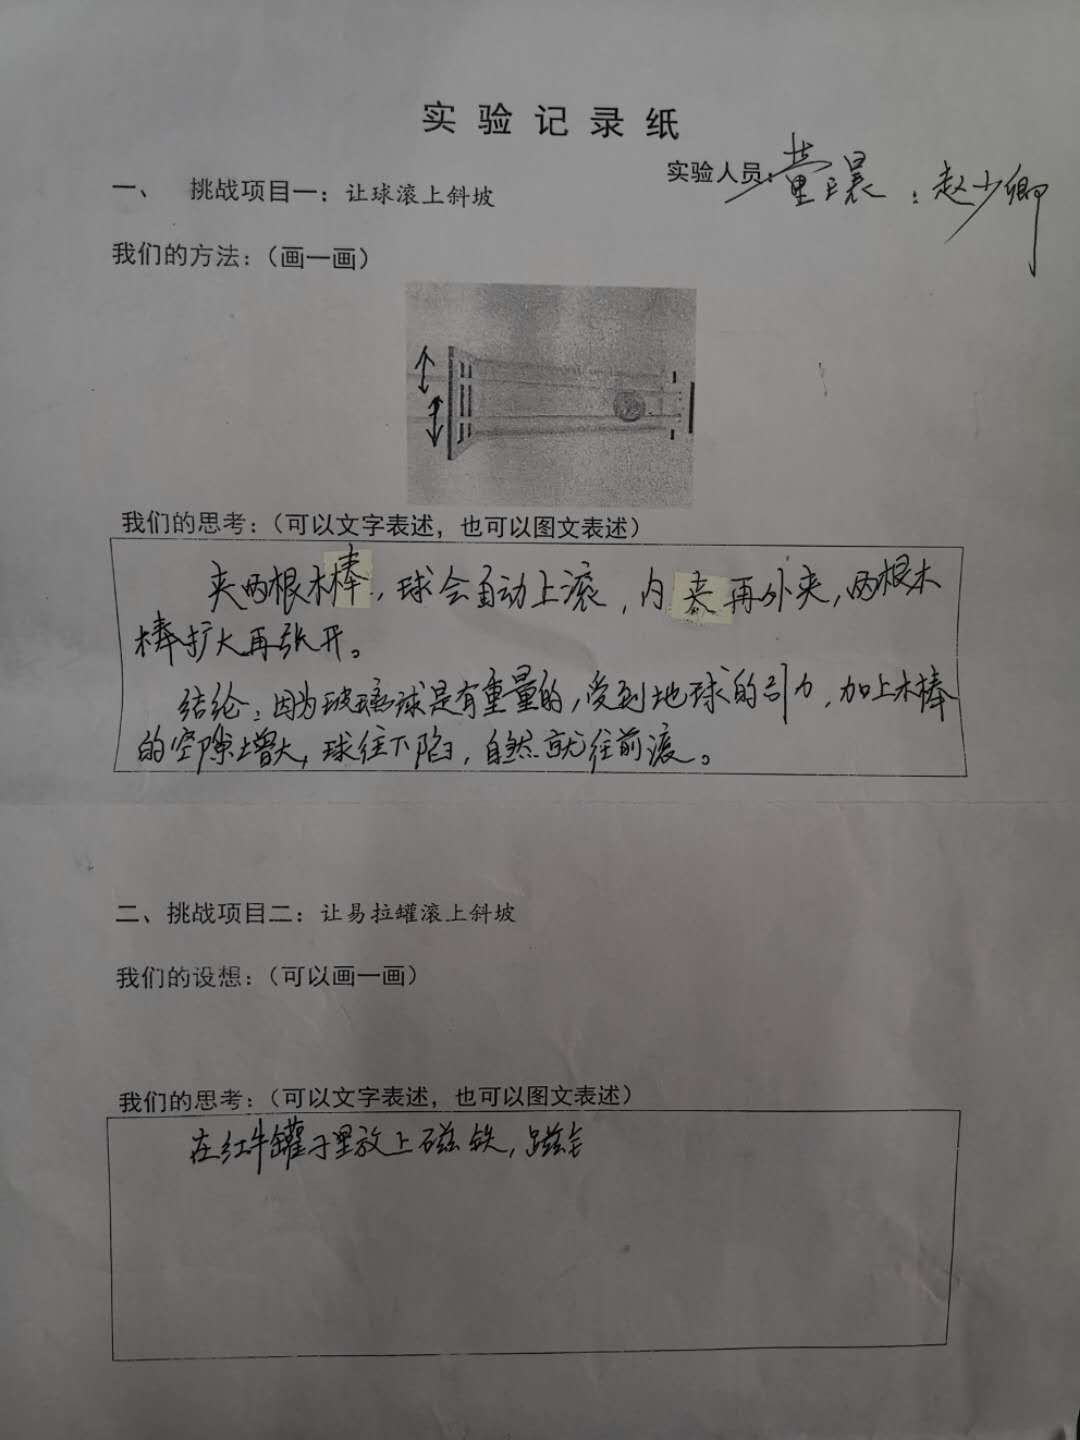 实验记录纸
实验人员：董正晨：赵少卿
一、 挑战项目一：让球滚上斜坡
我们的方法：（画一画）
我们的思考：（可以文字表述，也可以图文表述）
夹两根木棒，球会自动上滚，内夹再外夹，两根木
棒扩大再张开。
结论：因为玻璃球是有重量的，受到地球的引力，加上木棒
的空隙增大，球往下陷，自然就往前滚。
二、挑战项目二：让易拉罐滚上斜坡
我们的设想：（可以画一画）
我们的思考：（可以文字表述，也可以图文表述）
在红牛罐子里放上磁铁，